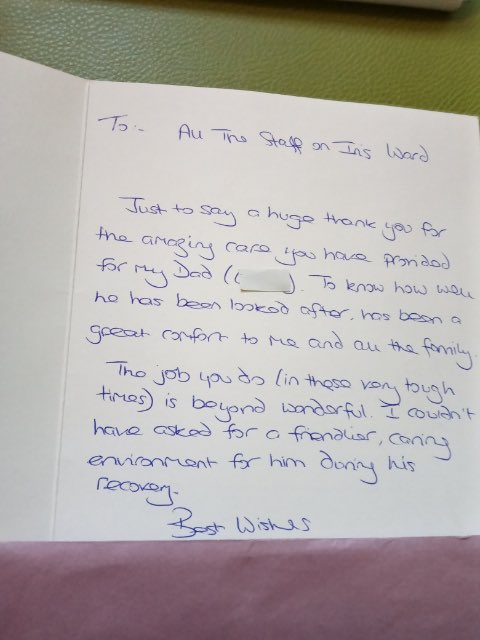 To:- All The Staff on Iris Ward
Just to say a huge thank you for
the amazing care you have provided
for my Dad ( ). To know how well
he has been looked after, has been a
great comfort to me and all the family.
The job you do (in these very tough
times) is beyond wonderful. I couldn't
have asked for a friendlier, caring
environment for him during his
recovery.
Best Wishes